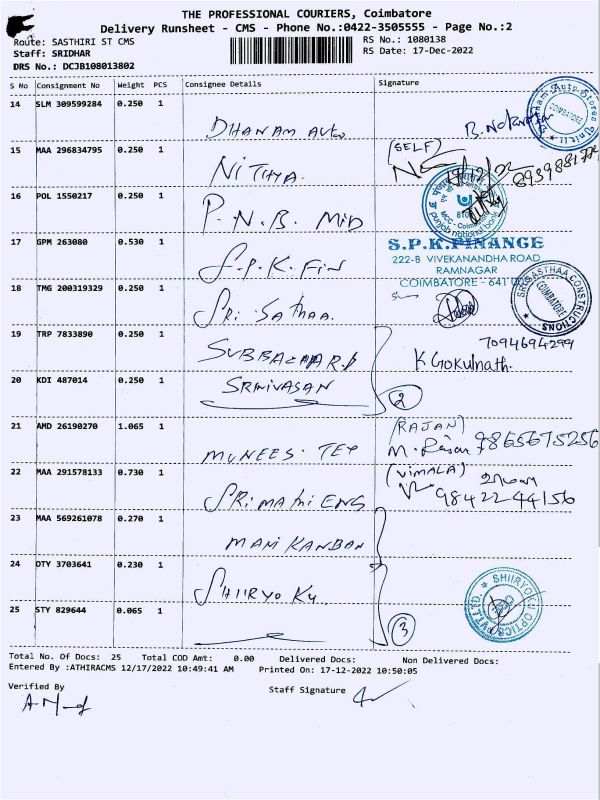 THE PROFESSIONAL COURIERS, Coimbatore
Delivery Runsheet - CMS - Phone No.:0422-3505555 - Page No.:2
Route: SASTHIRI ST CMS
RS No.: 1080138
Staff: SRIDHAR
RS Date: 17-Dec-2022
DRS No.: DCJB108013802
S No Consignment No Weight PCS Consignee Details Signature
14 SLM 309599284 0.250 1 DHANAM AUto
15 MAA 296834795 0.250 1 NITHA. (SELF)
16 POL 1550217 0.250 1 P.N.B. MID
punjab national bank
17 GPM 263080 0.530 1 S.P.K. FIN
S.P.K.FINANCE
222-B VIVEKANANDHA ROAD
RAMNAGAR
COIMBATORE - 641 009
18 TMG 200319329 0.250 1 SRI. SATHAA.
CONSTRUCTIONS
COIMBATORE
19 TRP 7833890 0.250 1
7094694299
K Gokulnath.
20 KDI 487014 0.250 1 SRINIVASAN 2
21 AMD 26190270 1.065 1 MUNEES. TEX (RAJAN)
9865675256
22 MAA 291578133 0.730 1 SRIMATHI ENG (VIMALA)
9842244156
23 MAA 569261078 0.270 1 MANI KANDAN
24 OTY 3703641 0.230 1 SHIIRYO Ku
25 STY 829644 0.065 1 3
Total No. Of Docs: 25 Total COD Amt: 0.00 Delivered Docs: Non Delivered Docs:
Entered By :ATHIRACMS 12/17/2022 10:49:41 AM Printed On: 17-12-2022 10:50:05
Verified By
Staff Signature